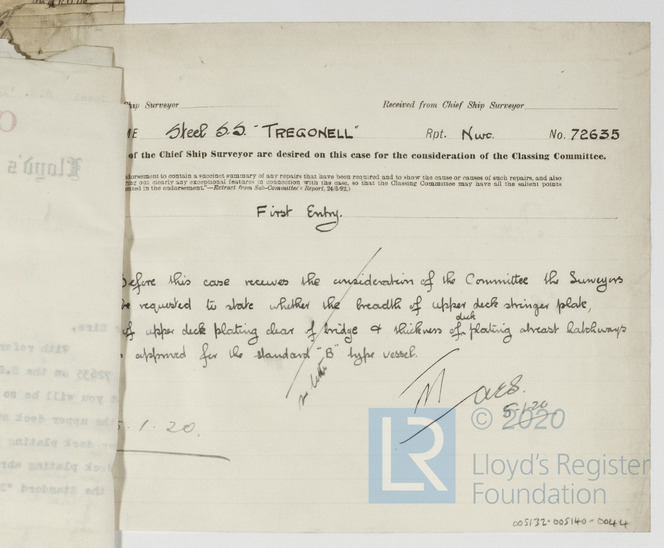 hip Surveyor
Received from Chief Ship Surveyor
ME Steel S.S. "TREGONELL" Rpt. Nwc. No. 72635
of the Chief Ship Surveyor are desired on this case for the consideration of the Classing Committee.
ndorsement to contain a succinct summary of any repairs that have been required and to show the cause or causes of such repairs, and also
ing out clearly any exceptional features in connection with the case, so that the Classing Committee may have all the salient points
ented in the endorsement."—Extract from Sub-Committee's Report, 24/5/92.)
First Entry.
Before this case receives the consideration of the Committee the Surveyors
be requested to state whether the breadth of upper deck stringer plate,
of upper deck plating clear of bridge & thickness of deck plating abreast hatchways
approved for the standard "B" type vessel.
5.1.20
5.1.20.
LR
© 2020
Lloyd's Register
Foundation
005132-005140-0044
Lloyd's
Sirs,
With refer
72635 on the S.S.
you will be so
upper deck
deck plating
deck plating abr
the Standard "B